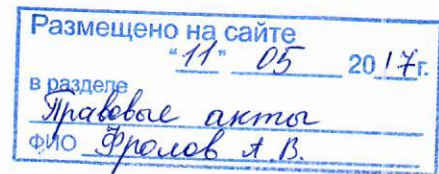 Размещено на сайте
"11" 05 2017г.
в разделе
Правовые акты
ФИО Фролов А.В.